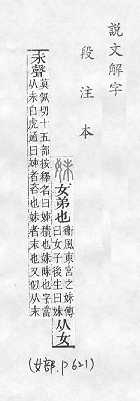 說文解字
段注本
妹女弟也衛風東宮之妹傳曰女子後生曰妹从女
未聲莫佩切十五部按釋名曰姊積也妹昧也字當从未白虎通曰姊者咨也妹者末也又似从末
(女部, P 621)